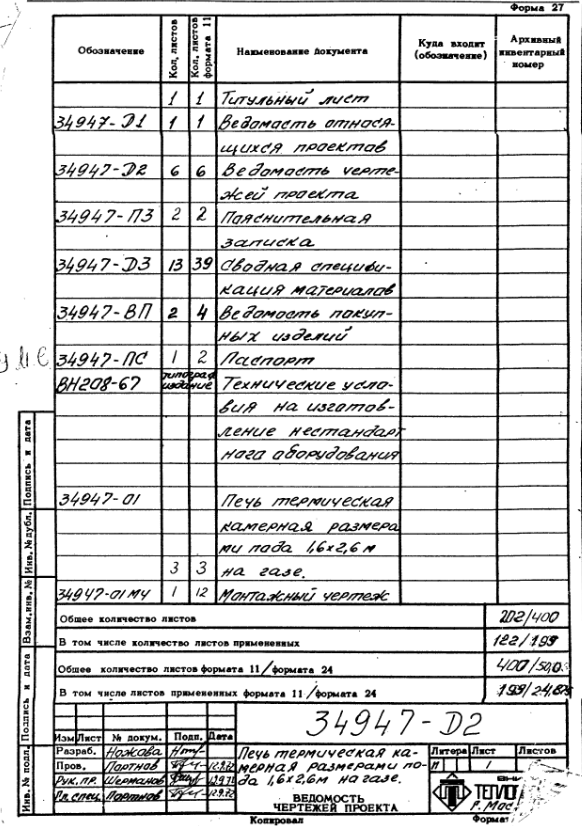 Форма 27
Обозначение | Кол. листов | Кол. листов формата 11 | Наименование документа | Куда входит (обозначение) | Архивный инвентарный номер
1 1 Титульный лист
34947-Д1 1 1 Ведомость относя-
щихся проектов
34947-Д2 6 6 Ведомость черте-
жей проекта
34947-ПЗ 2 2 Пояснительная
записка
34947-Д3 13 39 Сводная специфи-
кация материалов
34947-ВП 2 4 Ведомость покуп-
ных изделий
34947-ПС 1 2 Паспорт
ВН208-67 типограф. издание Технические усло-
вия на изготов-
ление нестандарт
ного оборудования
34947-01 Печь термическая
камерная размера
ми пода 1,6х2,6 м
3 3 на газе.
34947-01МЧ 1 12 Монтажный чертеж
Общее количество листов 202/400
В том числе количество листов примененных 122/199
Общее количество листов формата 11/формата 24 400/50,0
В том числе листов примененных формата 11/формата 24 199/24,875
34947-Д2
Изм Лист № докум. Подп. Дата
Разраб. Ножова
Пров. Портнов 12.9.72
Рук. пр. Шерманов 12.9.72
Гл. спец. Портнов 12.9.72
Печь термическая ка-
мерная размерами по-
да 1,6х2,6м на газе.
ВЕДОМОСТЬ
ЧЕРТЕЖЕЙ ПРОЕКТА
Литера Лист Листов
П 1
ТЕПЛО
г. Мос
Копировал
Формат
Инв. № подл.
Подпись и дата
Взам. инв. №
Инв. № дубл.
Подпись и дата